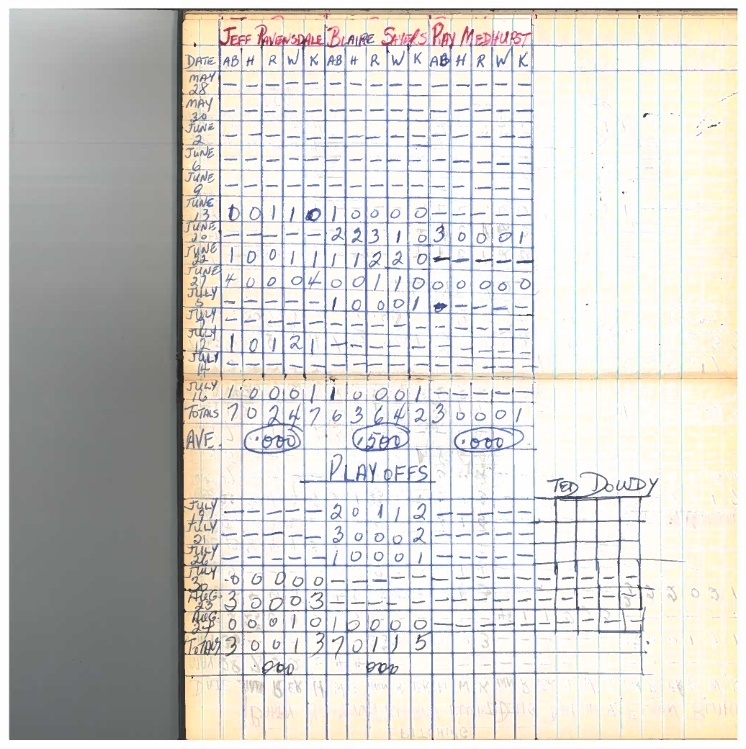 JEFF PAVENSDALE BLAIRE SAYERS RAY MEDHURST
DATE AB H R W K AB H R W K AB H R W K
MAY 28 – – – – – – – – – – – – – – –
MAY 30 – – – – – – – – – – – – – – –
JUNE 2 – – – – – – – – – – – – – – –
JUNE 6 – – – – – – – – – – – – – – –
JUNE 9 – – – – – – – – – – – – – – –
JUNE 13 0 0 1 1 0 1 0 0 0 0 – – – – –
JUNE 20 – – – – – 2 2 3 1 0 3 0 0 0 1
JUNE 22 1 0 0 1 1 1 1 2 2 0 – – – – –
JUNE 27 4 0 0 0 4 0 0 1 1 0 0 0 0 0 0
JULY 5 – – – – – 1 0 0 0 1 – – – –
JULY – – – – – – – – – – – – – – –
JULY 12 1 0 1 2 1 – – – – – – – – – –
JULY 14 – – – – – – – – – – – – – – –
JULY 16 1 0 0 0 1 1 0 0 0 1 – – – – –
TOTALS 7 0 2 4 7 6 3 6 4 2 3 0 0 0 1
AVE. .000 .500 .000
PLAYOFFS
TED DOWDY
JULY – – – – – 2 0 1 1 2 – – – – –
JULY 21 – – – – – 3 0 0 0 2 – – – – –
JULY 26 – – – – – 1 0 0 0 1 – – – – –
JULY 30 0 0 0 0 0 – – – – – – – – – – – – – – –
AUG. 23 3 0 0 0 3 – – – – – – – – – – – – – –
AUG. 0 0 0 1 0 1 0 0 0 0 – – – – – – – – – –
TOTALS 3 0 0 1 3 7 0 1 1 5
000 000